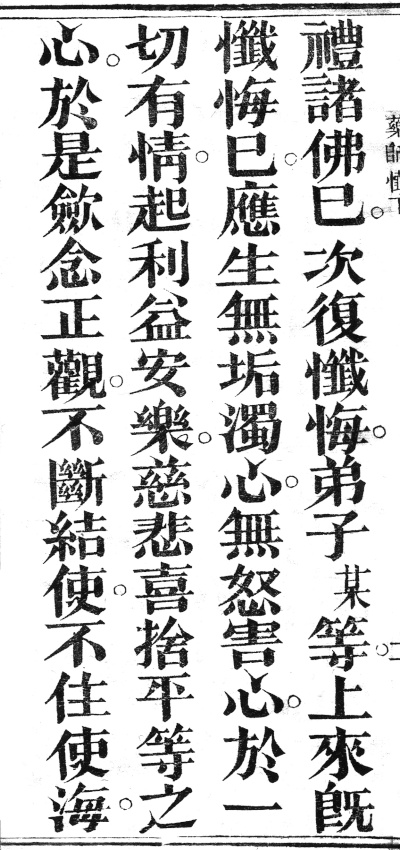 藥師懺下
禮諸佛已。次復懺悔。弟子某等。上來既
懺悔已。應生無垢濁心。無怒害心。於一
切有情。起利益安樂。慈悲喜捨平等之
心。於是斂念正觀。不斷結使。不住使海。